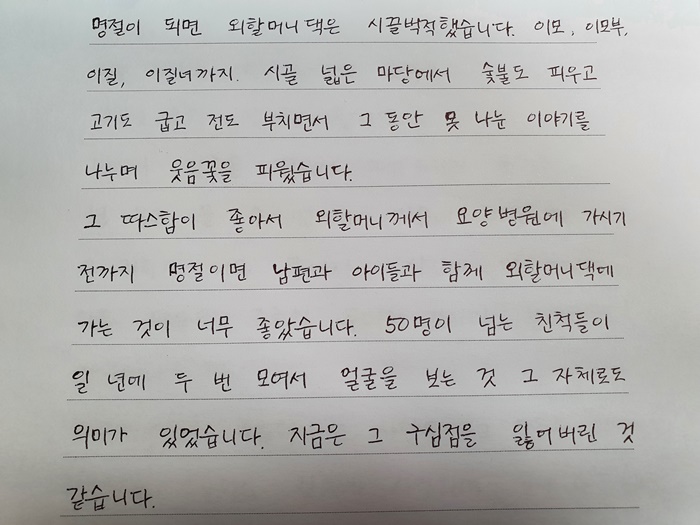 명절이 되면 외할머니 댁은 시끌벅적했습니다. 이모, 이모부,
이질, 이질녀까지. 시골 넓은 마당에서 숯불도 피우고
고기도 굽고 전도 부치면서 그 동안 못 나눈 이야기를
나누며 웃음꽃을 피웠습니다.
그 따스함이 좋아서 외할머니께서 요양병원에 가시기
전까지 명절이면 남편과 아이들과 함께 외할머니댁에
가는 것이 너무 좋았습니다. 50명이 넘는 친척들이
일 년에 두 번 모여서 얼굴을 보는 것 그 자체로도
의미가 있었습니다. 지금은 그 구심점을 잃어버린 것
같습니다.